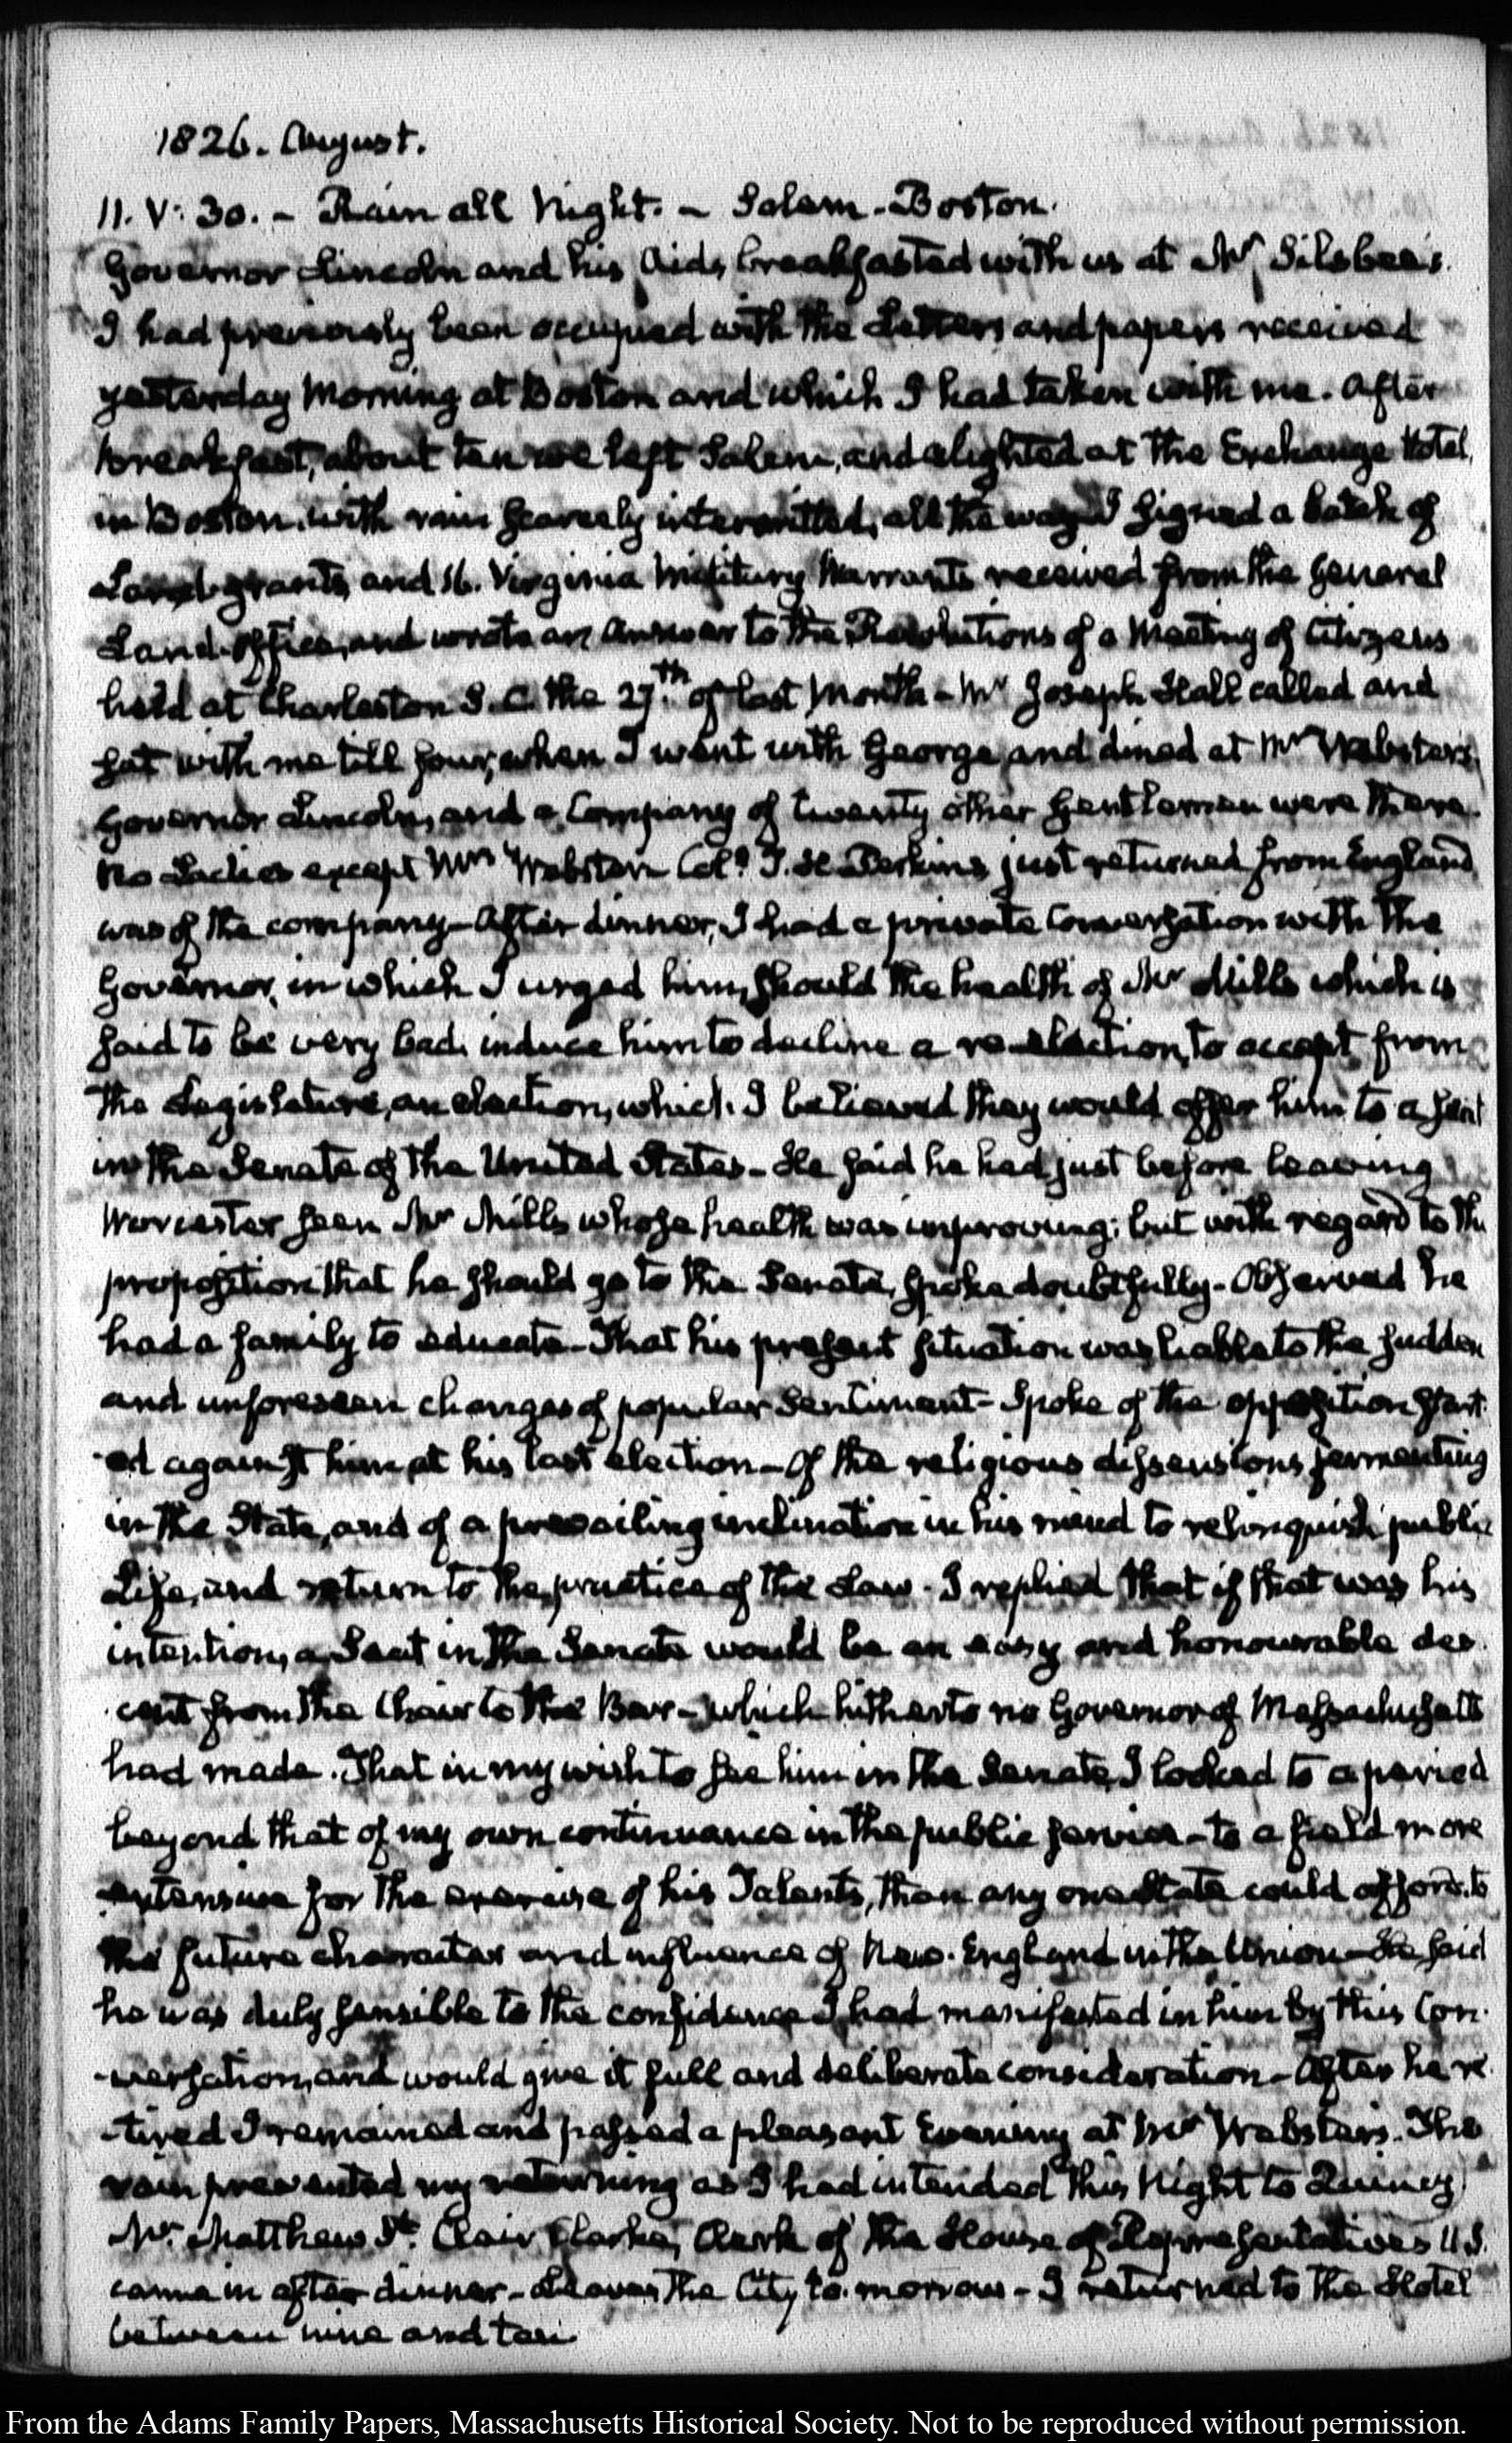 1826. August.
11. V: 30. - Rain all Night. - Salem - Boston.
Governor Lincoln and his Aids, breakfasted with us at Mr Silsbee's.
I had previously been occupied with the Letters and papers received
yesterday Morning at Boston and which I had taken with me. After
breakfast, about ten we left Salem, and alighted at the Exchange Hotel,
in Boston, with rain scarcely intermitted, all the way. I signed a batch of
Land-grants, and 16. Virginia Military Warrants received from the General
Land-Office, and wrote an Answer to the Resolutions of a Meeting of Citizens
held at Charleston S.C. the 27.th of last Month - Mr Joseph Hall called and
sat with me till four, when I went with George, and dined at Mr Webster's.
Governor Lincoln, and a Company of twenty other Gentlemen were there.
No Ladies except Mrs Webster. Coll. T. H. Perkins just returned from England
was of the company - After dinner, I had a private Conversation with the
Governor, in which I urged him, should the health of Mr Mills which is
said to be very bad, induce him to decline a re-election, to accept from
the Legislature, an election, which I believed they would offer him to a seat
in the Senate of the United States - He said he had just before leaving
Worcester seen Mr Mills whose health was improving; but with regard to the
proposition that he should go to the Senate, spoke doubtfully - Observed he
had a family to educate - That his present situation was liable to the sudden
and unforeseen changes of popular sentiment - Spoke of the opposition start-
-ed against him at his last election - of the religious dissensions fermenting
in the State, and of a prevailing inclination in his mind to relinquish public
Life, and return to the practice of the Law - I replied that if that was his
intention, a Seat in the Senate would be an easy and honourable des-
-cent from the Chair to the Bar - which hitherto no Governor of Massachusetts
had made. That in my wish to see him in the Senate, I looked to a period
beyond that of my own continuance in the public service - to a field more
extensive for the exercise of his Talents, than any one State could afford. to
the future character and influence of New-England in the Union - He said
he was duly sensible to the confidence I had manifested in him by this Con-
-versation, and would give it full and deliberate consideration - After he re-
-tired I remained and passed a pleasant Evening at Mr Webster's. The
rain prevented my returning as I had intended this Night to Quincy
Mr. Matthew St. Clair Clarke, Clerk of the House of Representatives U.S.
came in after dinner - Leaves the City to-morrow - I returned to the Hotel
between nine and ten.
From the Adams Family Papers, Massachusetts Historical Society. Not to be reproduced without permission.